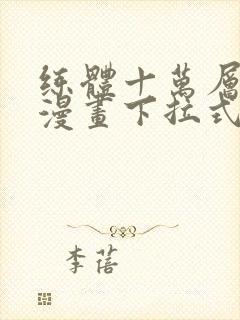 练體十萬層
漫畫下拉式
李蓓